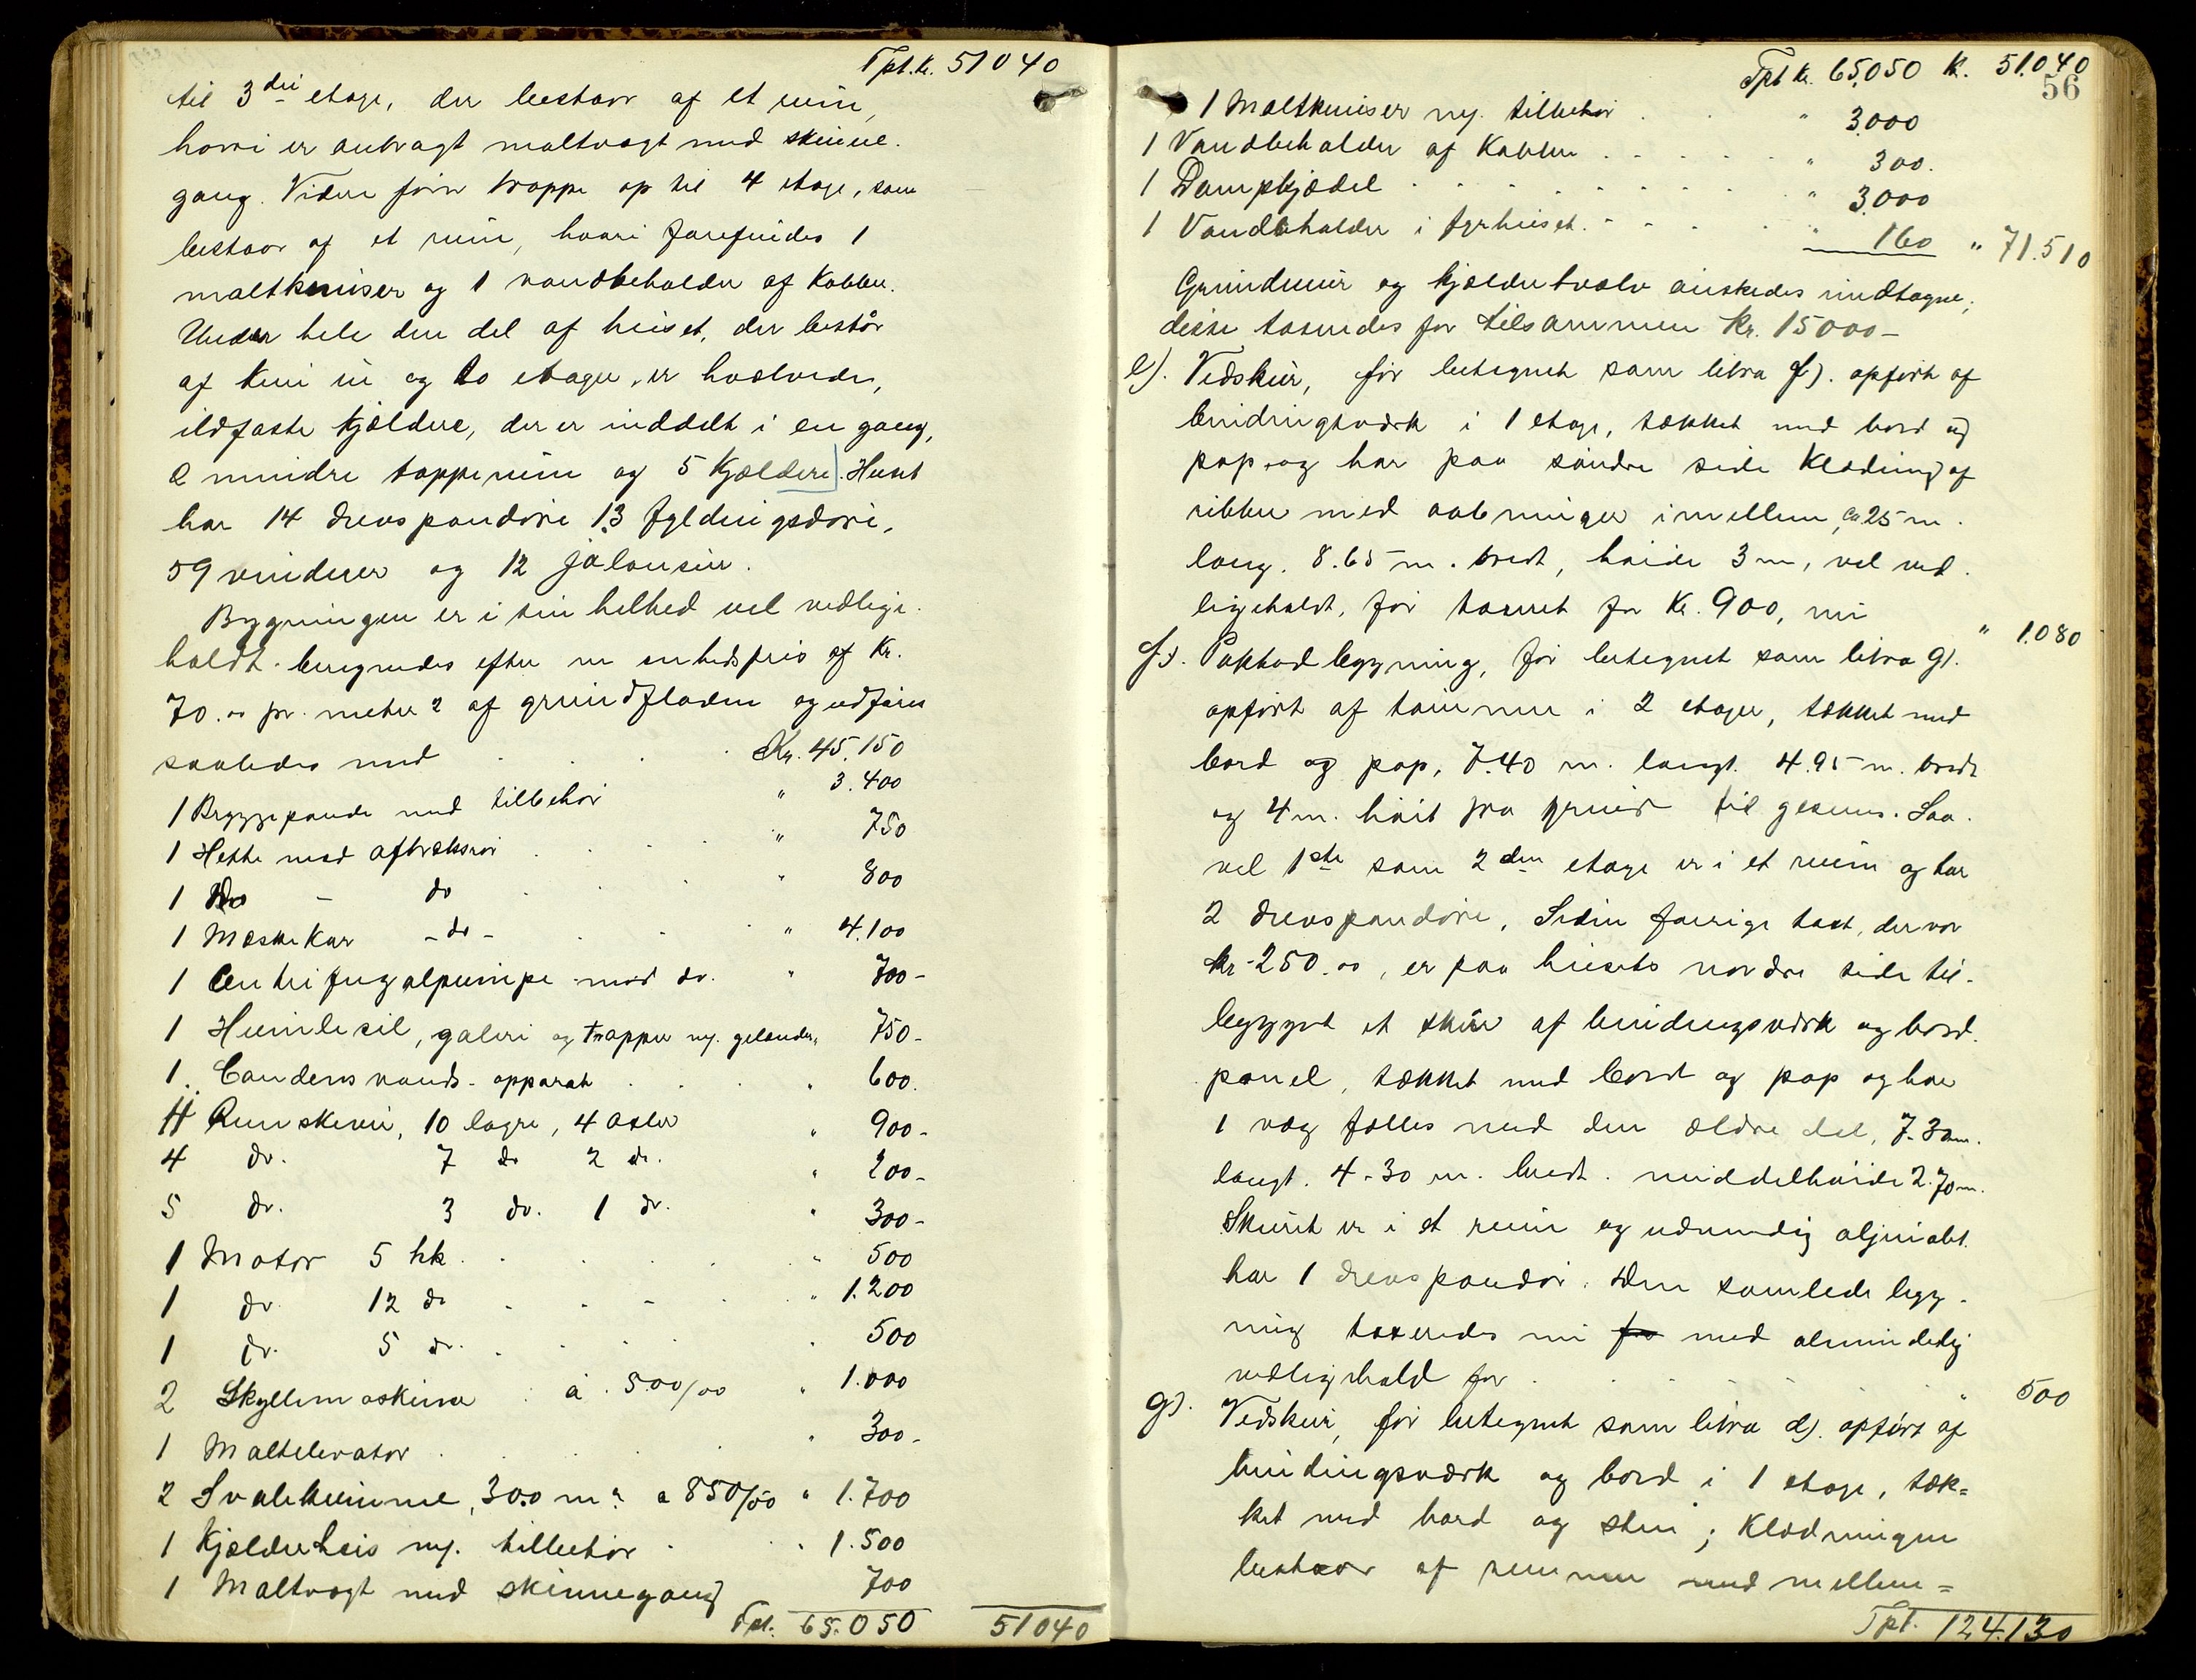 Tpt. kr. 51040
til 3die etage, der bestaar af et rum,
hvori er anbragt maltvogt med skinne-
gang. Videre fører trappe op til 4 etage, som
bestaar af et rum, hvori forefindes 1
maltknuser og 1 vandbeholder af Kobber.
Under hele den del af huset, der består
af kun en og to etager, er hvælvede,
ildfaste kjeldere, der er inddelt i en gang,
2 mindre tapperum og 5 Kjeldere. Huset
har 14 drevspanddøre 13 fyldningsdøre,
59 vinduer og 12 jalousier.
Bygningen er i sin helhed vel vedlige-
holdt. beregnedes efter en enhedspris af Kr.
70.00 pr. meter 2 af grundfladen og udføres
saaledes med Kr. 45.150
1 Bryggepande med tilbehør " 3.400
1 Hette med aftræksrør " 750
1 Do - do " 800
1 Mæskekar - do - " 4.100
1 Centrifugalpumpe med do. " 700-
1 Humlesil, galeri og trapper og gelænder " 750-
1. Condensvands-apparat " 600.
11 Remskiver, 10 lagre, 4 axler " 900-
4 do. 7 do 2 do. " 200-
5 do. 3 do. 1 do. " 300-
1 Motor 5 hk. " 500
1 do. 12 do " 1.200
1 do. 5 do. " 500
2 Skyllemaskiner à 500/00 " 1.000
1 Maltelevator " 300-
2 Svalekummer, 300 m2 a 850/00 " 1.700
1 Kjælderheis og tilbehør " 1.500
1 Maltvogt med skinnegang 700
Tpt. 65.050 51040
Tpt Kr. 65.050 K. 51.040
56
1 Maltknuser og tilbehør " 3.000
1 Vandbeholder af Kobber " 300.
1 Dampkjædel " 3.000
1 Vandbeholder i fyrhuset " 160 " 71.510
Grundmur og Kjælderhvælv ønskedes indtagne,
disse taxeredes for tilsammen Kr. 15000-
e). Vedskur, før betegnet som litra f). opført af
bindingsværk i 1 etage, tækket med bord og
pap, og har paa søndre side Klædning af
ribber med aabninger imellem, ca 25 m.
lang. 8.65 m. bredt, høide 3 m, vel ved-
ligeholdt, før taxeret for Kr. 900, nu " 1.080
f). Pakbodbygning, før betegnet som litra g).
opført af tømmer i 2 etager, tækket med
bord og pap, 7.40 m. langt. 4.95 m. bredt
og 4 m. høit fra grund til gesims. Saa-
vel 1ste som 2den etage er i et rum og har
2 drevspanddøre. Siden forrige taxt, der var
Kr-250.00, er paa husets nordre side til-
bygget et skur af bindingsværk og bord-
panel, tækket med bord og pap og har
1 væg fælles med den ældre del, 7.30m.
langt. 4.30 m. bredt. middelhøide 2.70 m.
Skuret er i et rum og udvendig oljemalet.
har 1 drevspanddør. Den samlede byg-
ning taxeredes nu for med almindelig
vedligehold for " 500
g). Vedskur, før betegnet som litra d). opført af
bindingsværk og bord i 1 etage, tæk=
ket med bord og sten; Klædningen
bestaar af rammer med mellem=
Tpt. 124.130